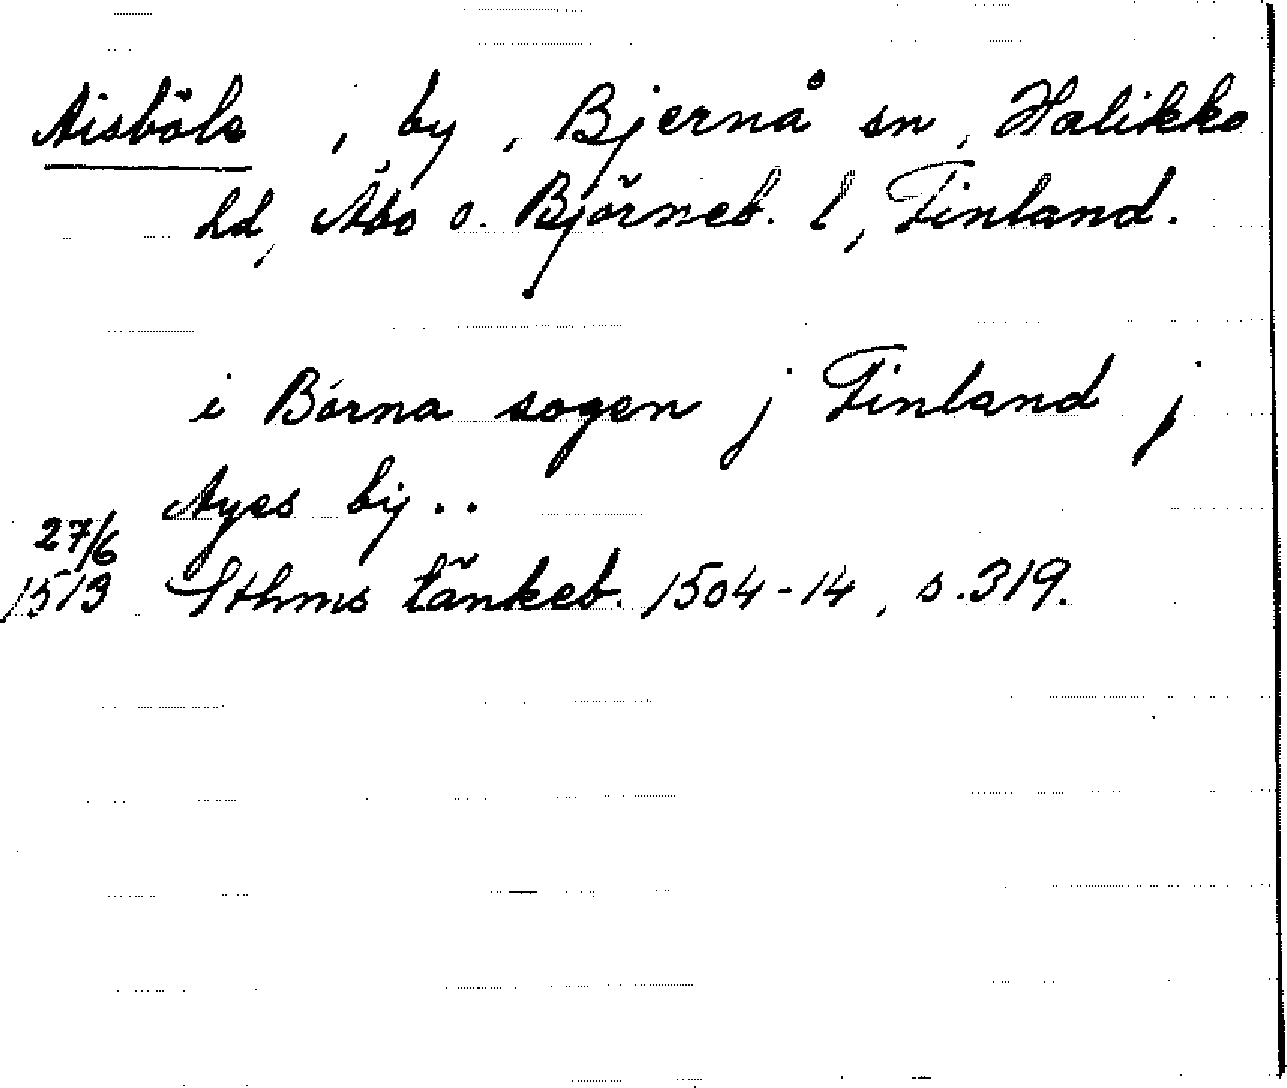 Aisböle, by, Bjernå sn, Halikko
hd, Åbo o. Björneb. l, Finland.
i Börna sogen j Finland j
Ayes bij..
27/6
1513 Sthms tänkeb. 1504-14, s.319.